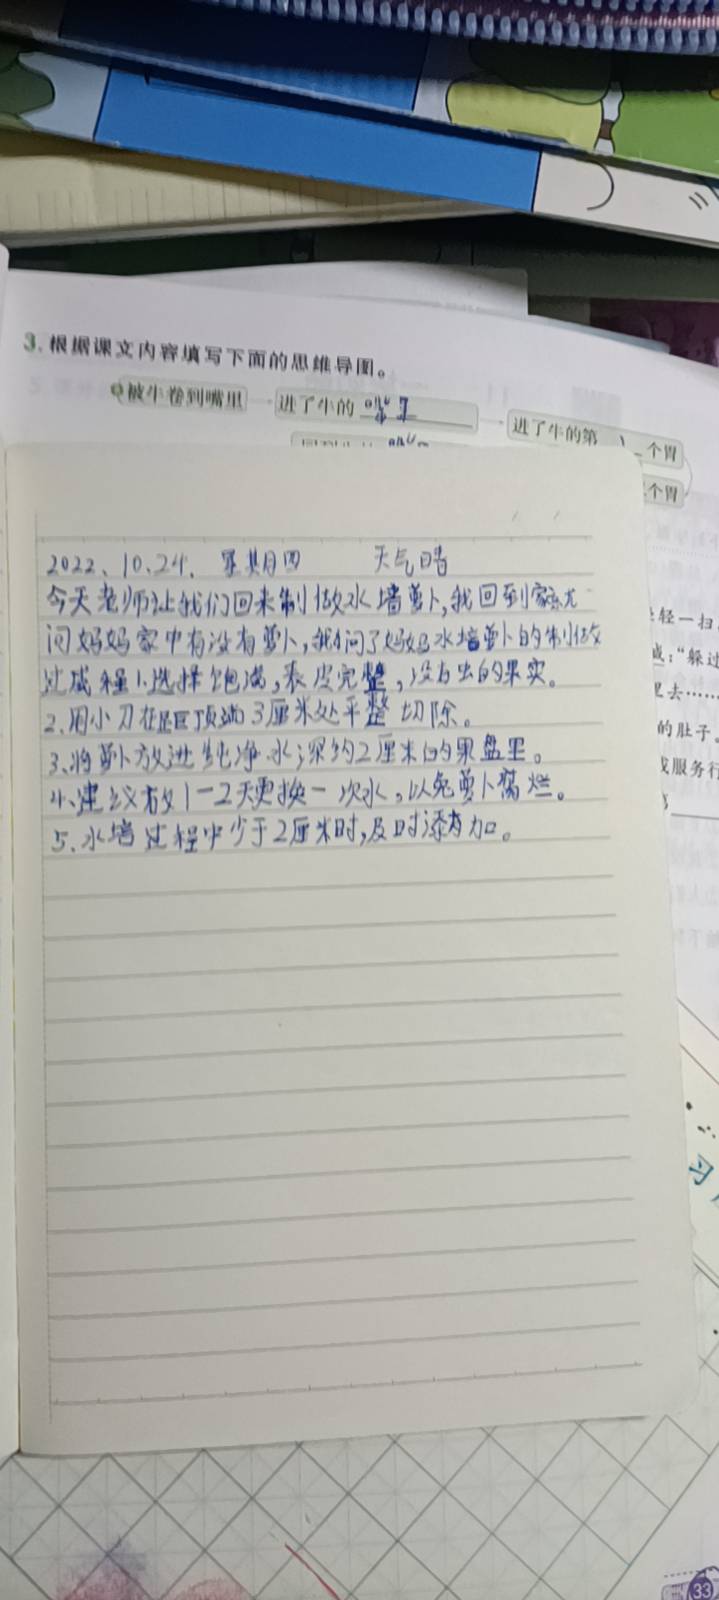 3.根据课文内容填写下面的思维导图。
被牛卷到嘴里
进了牛的嘴里
进了牛的第
个胃
个胃
2022、10.24. 星期四 天气晴
今天老师让我们回来制做水培萝卜,我回到家就
问妈妈家中有没有萝卜,我问了妈妈水培萝卜的制做
过成程1.选择饱满,表皮完整,没有虫的果实。
2.用小刀在距顶端3厘米处平整切除。
3.将萝卜放进纯净水深约2厘米的果盘里。
4、建议放1一2天更换一次水,以免萝卜腐烂。
5.水培过程中少于2厘米时,及时添加。
轻一扫
:“躲过
里去……
的肚子。
服务行
33